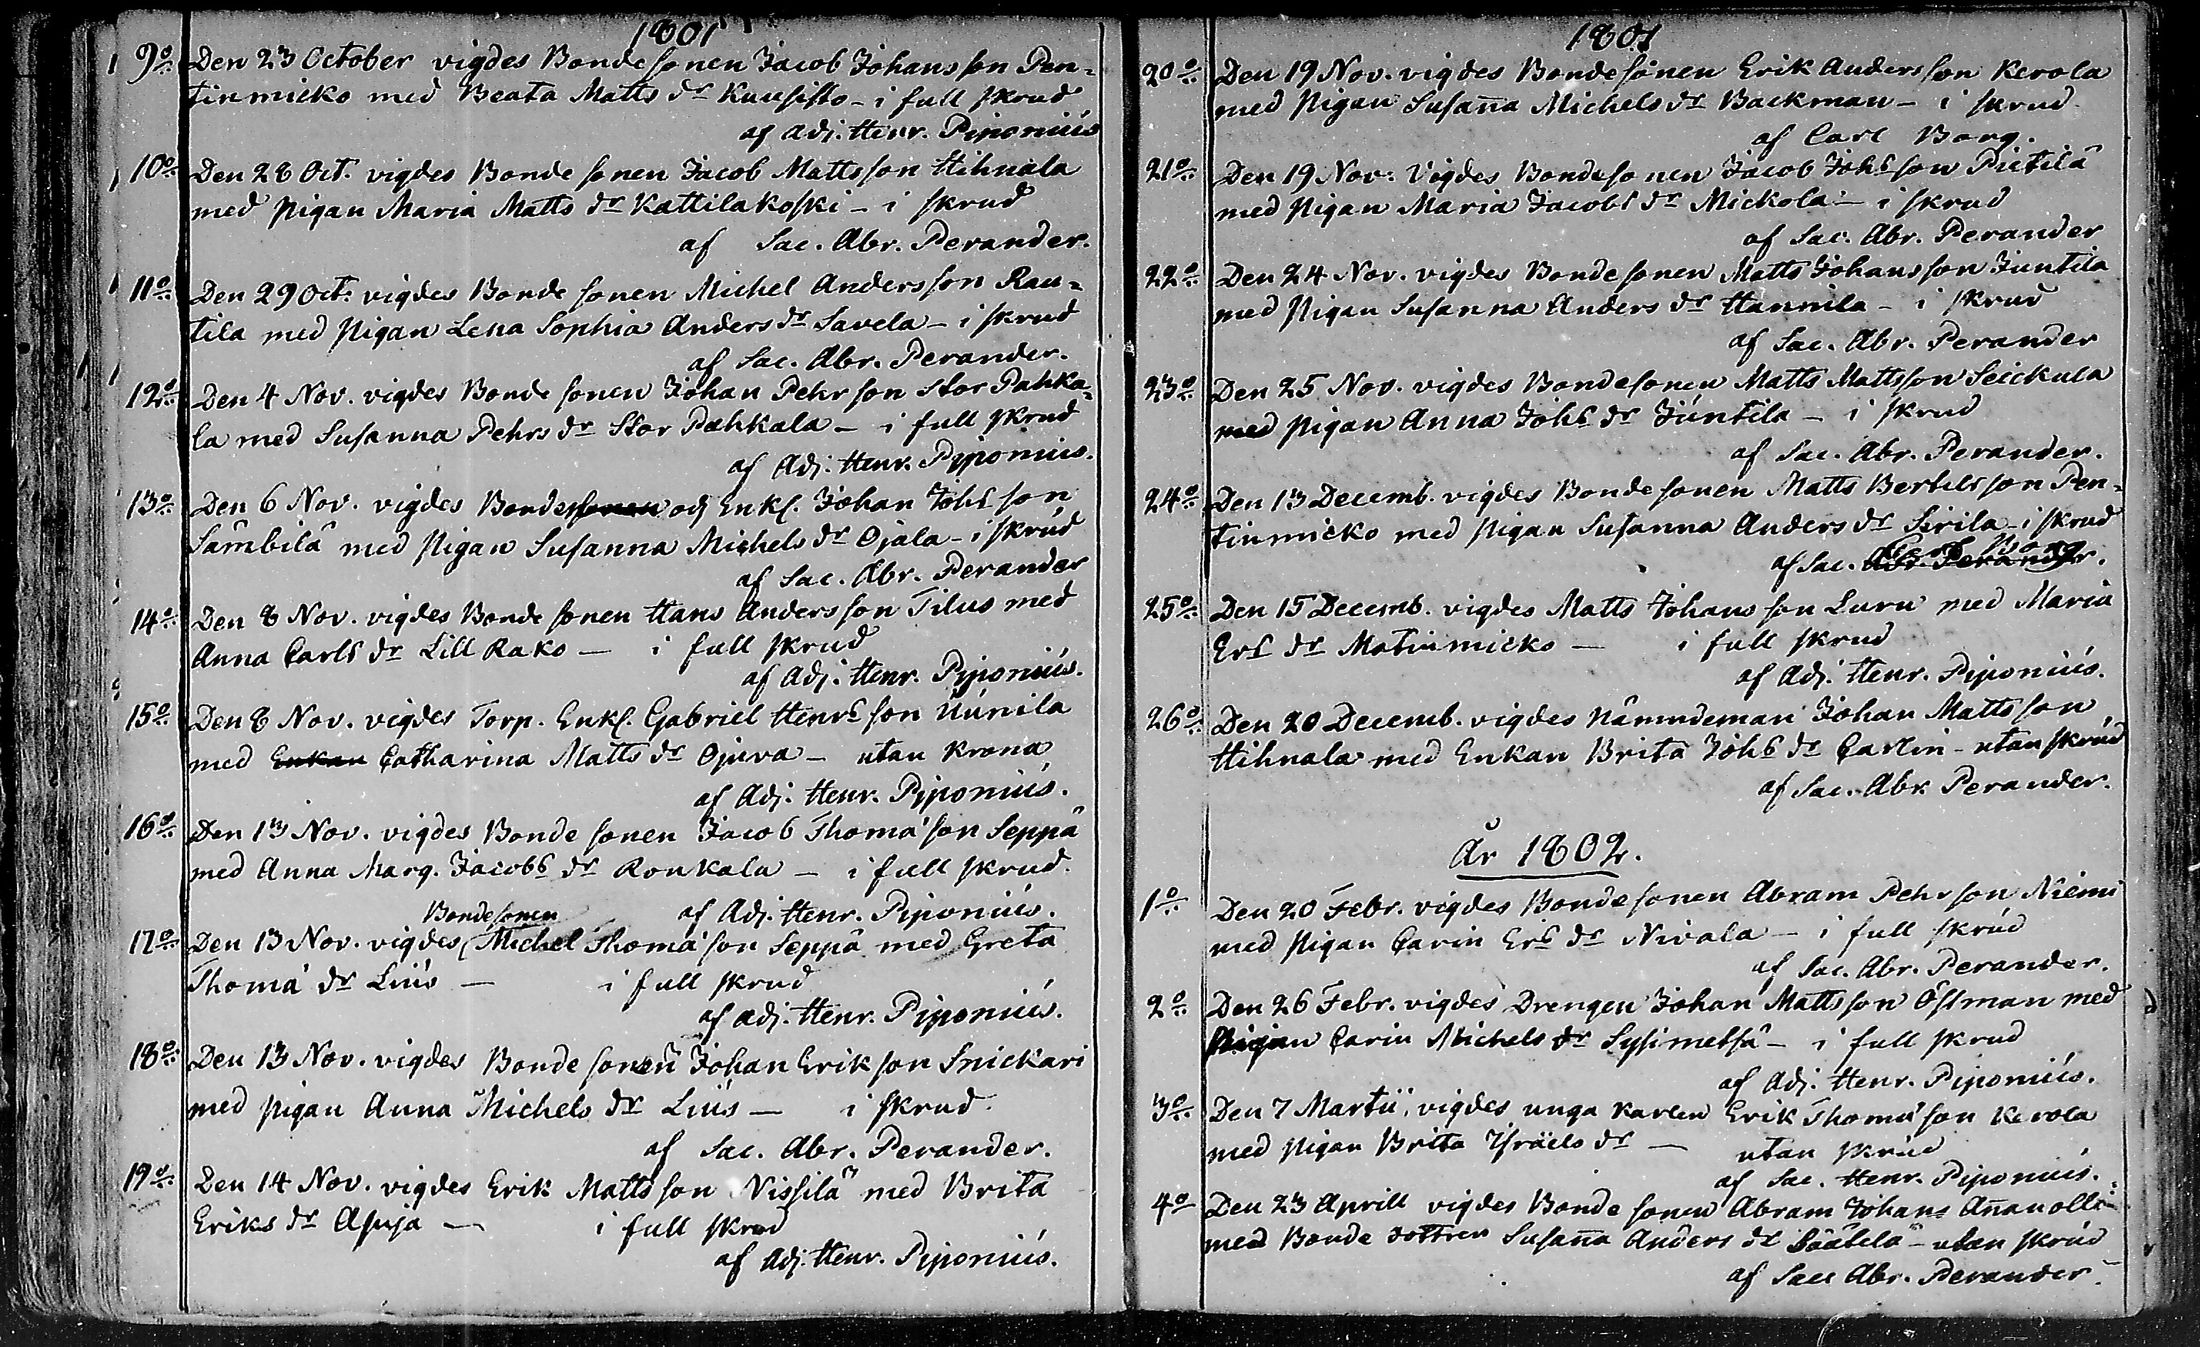 1801
9o Den 23 October vigdes Bondesonen Jacob Johansson Pen=
tinmicko med Beata Matts dr Kuusisto - i full skrud
af Adj. Henr. Piponius
10o Den 28 Oct. vigdes Bonde sonen Jacob Mattsson Hihnala
med pigan Maria Matts dr Kattilakoski - i skrud
af Sac. Abr. Perander.
11o Den 29 Oct. vigdes Bonde sonen Michel Andersson Rau=
tila med pigan Lena Sophia Anders dr Savela - i skrud
af Sac. Abr. Perander.
12o Den 4 Nov. vigdes Bonde sonen Johan Pehrson Stor Pahka=
la med Susanna Pehrs dr Stor Pahkala - i full skrud
af Adj. Henr. Piponius.
13o Den 6 Nov. vigdes Bondesonen och Enkl. Johan Johsson
Sämbilä med pigan Susanna Michels dr Ojala - i skrud
af Sac. Abr. Perander
14o Den 8 Nov. vigdes Bonde sonen Hans Andersson Tilus med
Anna Carls dr Lill Rako - i full skrud
af Adj. Henr. Piponius.
15o Den 8 Nov. vigdes Torp. Enkl. Gabriel Henrsson Uunila
med Enkan Catharina Matts dr Ojuva - utan krona
af Adj. Henr. Piponius.
16o Den 13 Nov. vigdes Bonde sonen Jacob Thomason Seppä
med Anna Marg. Jacobs dr Ronkala - i full skrud.
af Adj. Henr. Piponius.
Bondesonen
17o Den 13 Nov. vigdes Michel Thomason Seppä med Greta
Thoma dr Lius - i full skrud
af Adj. Henr. Piponius.
18o Den 13 Nov. vigdes Bonde sonen Johan Erikson Snickari
med pigan Anna Michels dr Lius - i skrud.
af Sac. Abr. Perander.
19o Den 14 Nov. vigdes Erik Mattsson Nissilä med Brita
Eriks dr Asuja - i full skrud
af Adj. Henr. Piponius.
1801
20o Den 19 Nov. vigdes Bondesonen Erik Andersson Kerola
med pigan Susana Michels dr Backman - i skrud.
af Carl Borg.
21o Den 19 Nov. Vigdes Bondesonen Jacob Johsson Pietilä
med pigan Maria Jacobs dr Mickola - i skrud
af Sac. Abr. Perander
22o Den 24 Nov. vigdes Bonde sonen Matts Johansson Juntila
med pigan Susanna Anders dr Hannila - i skrud
af Sac. Abr. Perander
23o Den 25 Nov. vigdes Bondesonen Matts Mattsson Seickula
med pigan Anna Johs dr Juntila - i skrud
af Sac. Abr. Perander.
24o Den 13 Decemb. vigdes Bonde sonen Matts Bertilsson Pen=
tinmicko med pigan Susanna Anders dr Sirila - i skrud
af Sac. Abr. Perander. Carl Borg
25o Den 15 Decemb. vigdes Matts Johansson Luru med Maria
Ers dr Matinmicko - i full skrud
af Adj. Henr. Piponius.
26o Den 20 Decemb. vigdes Nämndeman Johan Mattsson
Hihnala med Enkan Brita Johs dr Carlin - utan skrud
af Sac. Abr. Perander.
År 1802.
1o Den 20 Febr. vigdes Bonde sonen Abram Pehrson Niemi
med pigan Carin Ers dr Nivala - i full skrud
af Sac. Abr. Perander.
2o Den 26 Febr. vigdes Drengen Johan Mattsson Östman med
Pigan Carin Michels dr Sysimetsä - i full skrud
af Adj. Henr. Piponius.
3o Den 7 Martii, vigdes unga karlen Erik Thomason Kerola
med pigan Brita Israels dr - utan skrud
af Sac. Henr. Piponius.
4o Den 23 Aprill vigdes Bonde sonen Abram Johans Ananolli
med Bonde dottren Susana Anders dr Säätelä - utan skrud
af Sac Abr. Perander.